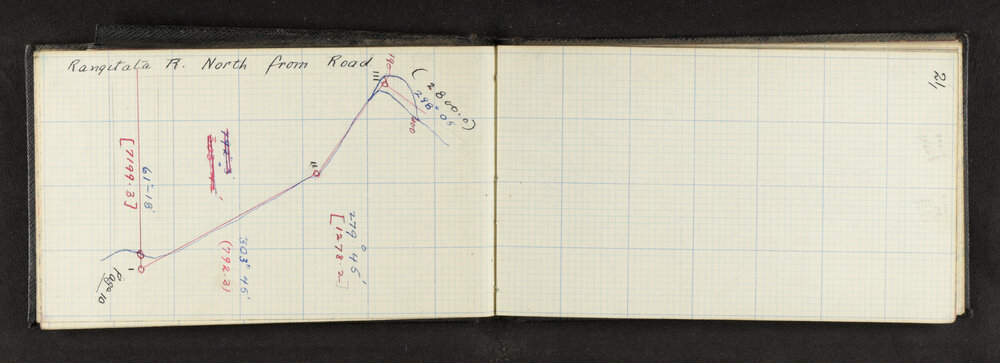 Rangitata R. North from Road
24
190
III
(2800.0)
298° 05'
200
II
61°-18'
[7199.3]
279° 45'
[1278.2]
303° 45'
(792.3)
I
Page 10